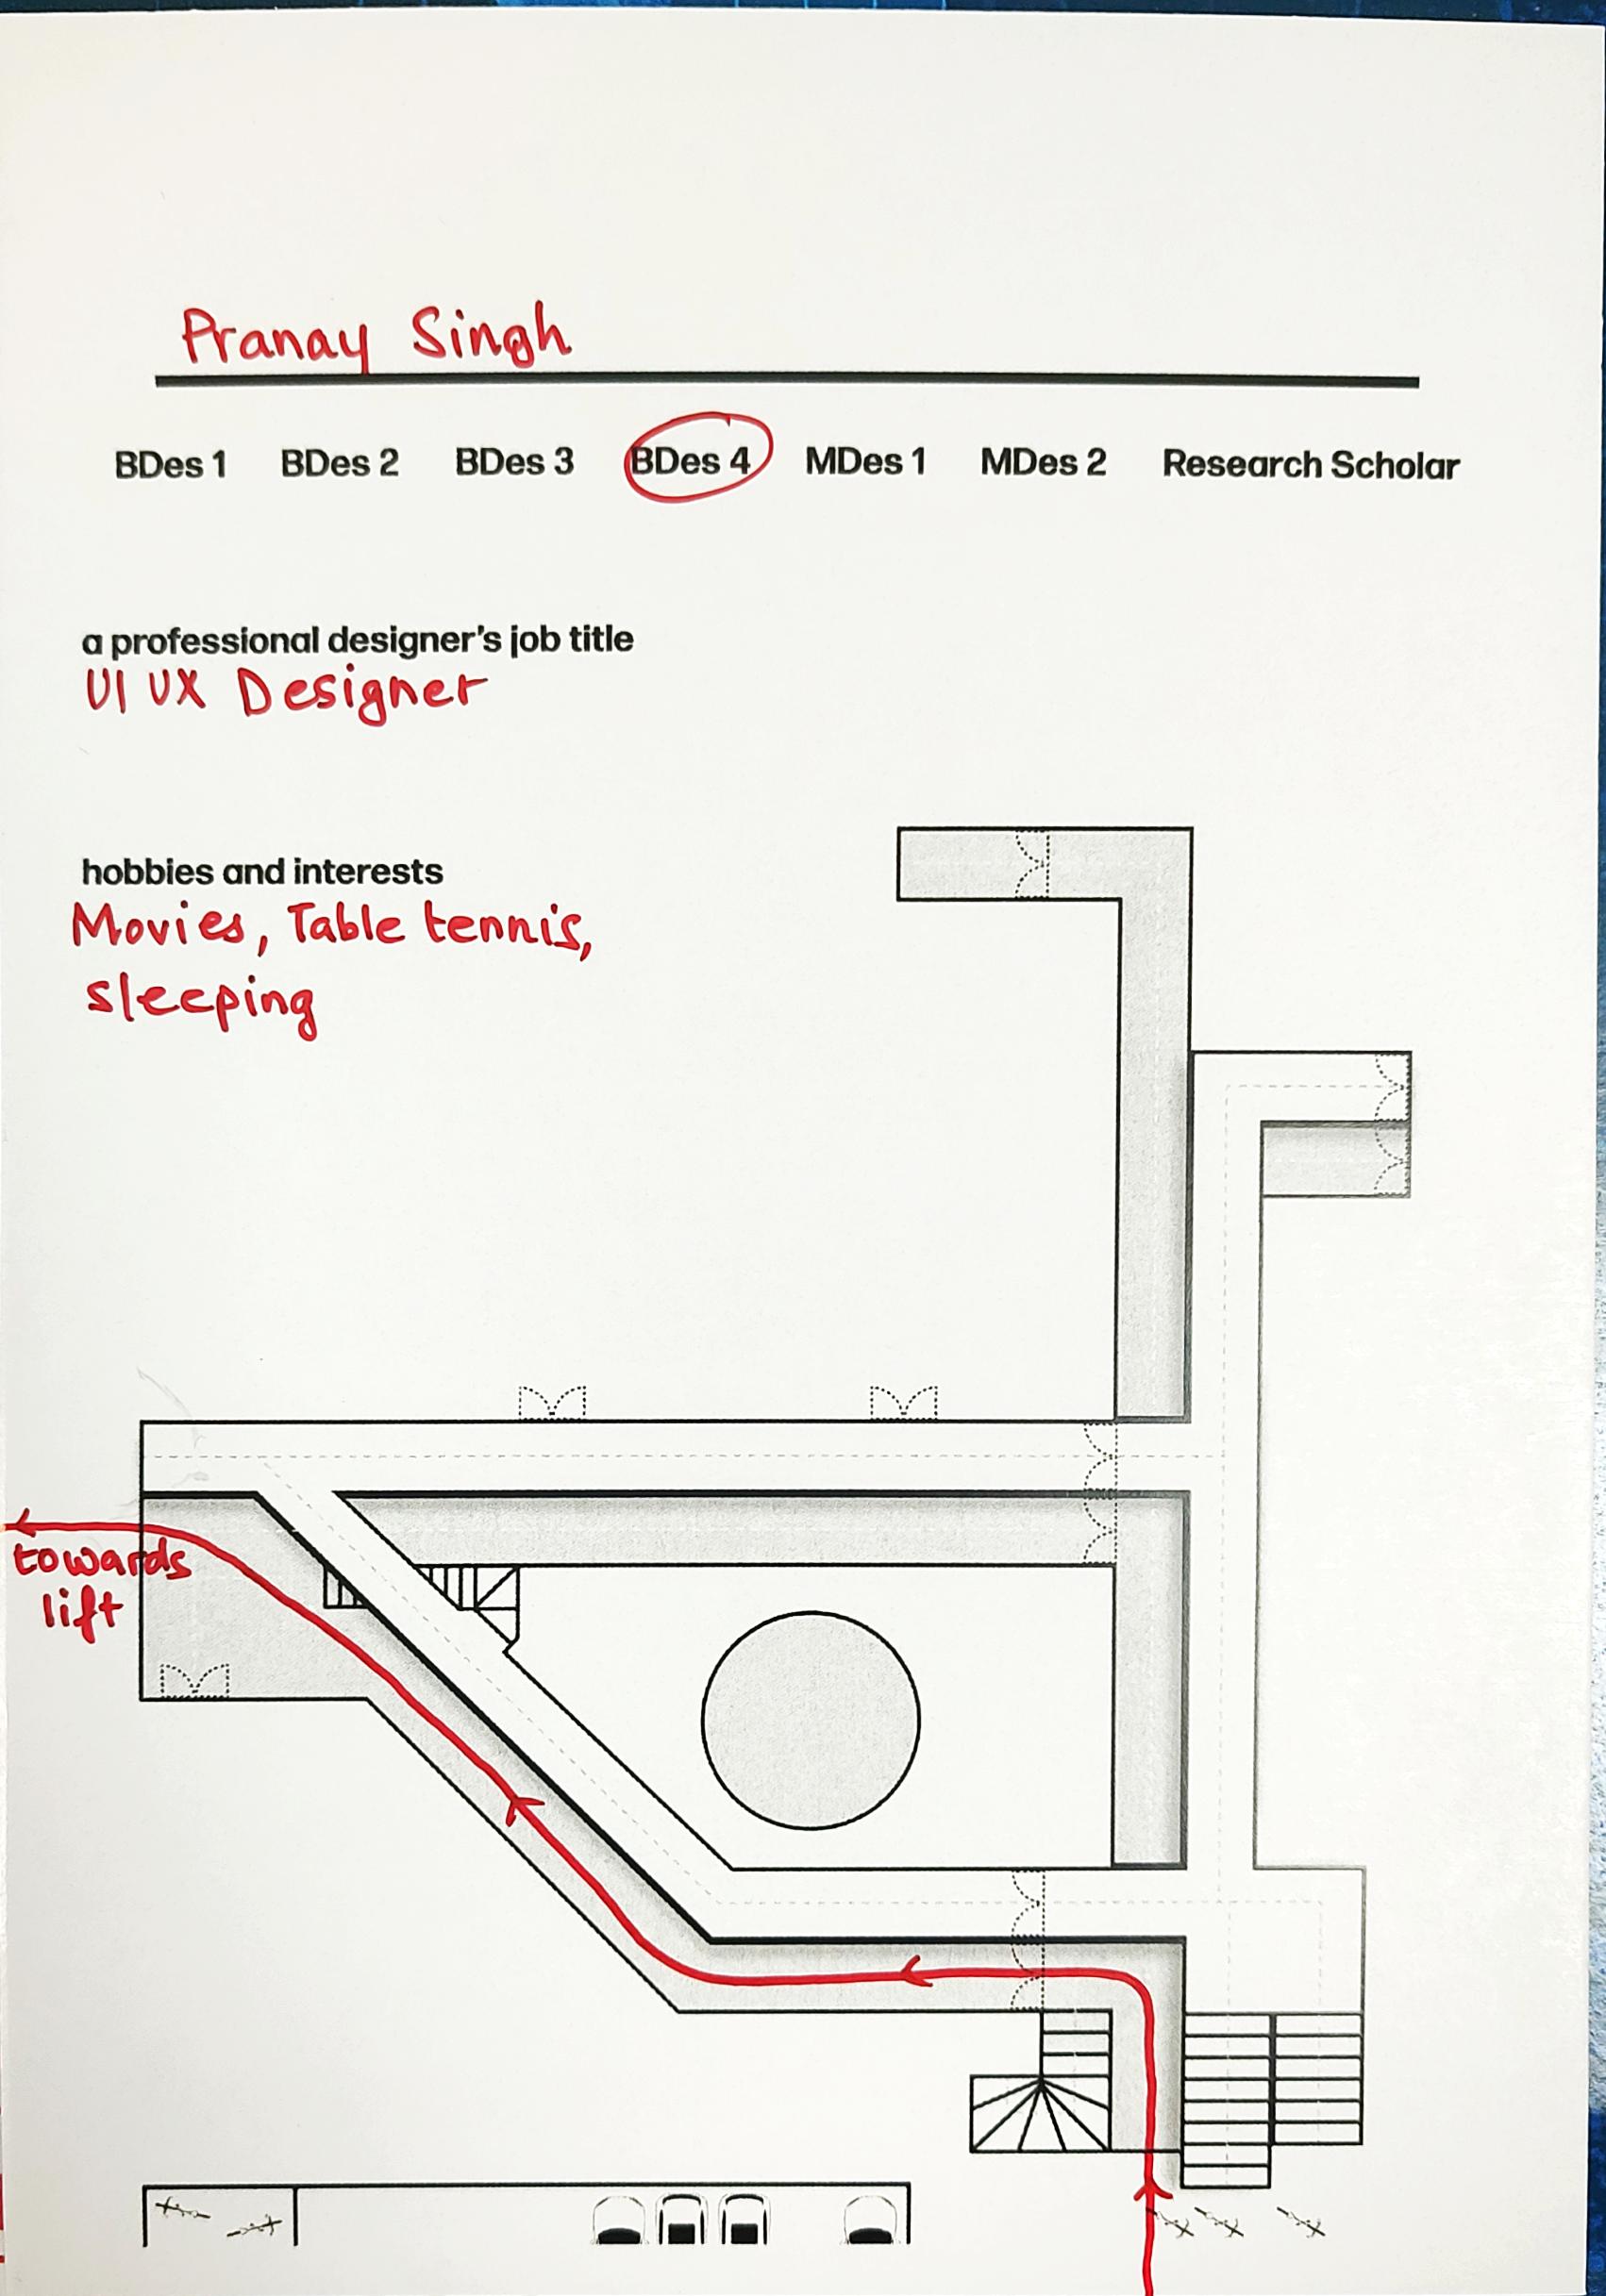 Pranay Singh
BDes 1 BDes 2 BDes 3 BDes 4 MDes 1 MDes 2 Research Scholar
a professional designer's job title
UI UX Designer
hobbies and interests
Movies, Table tennis,
sleeping
towards
lift